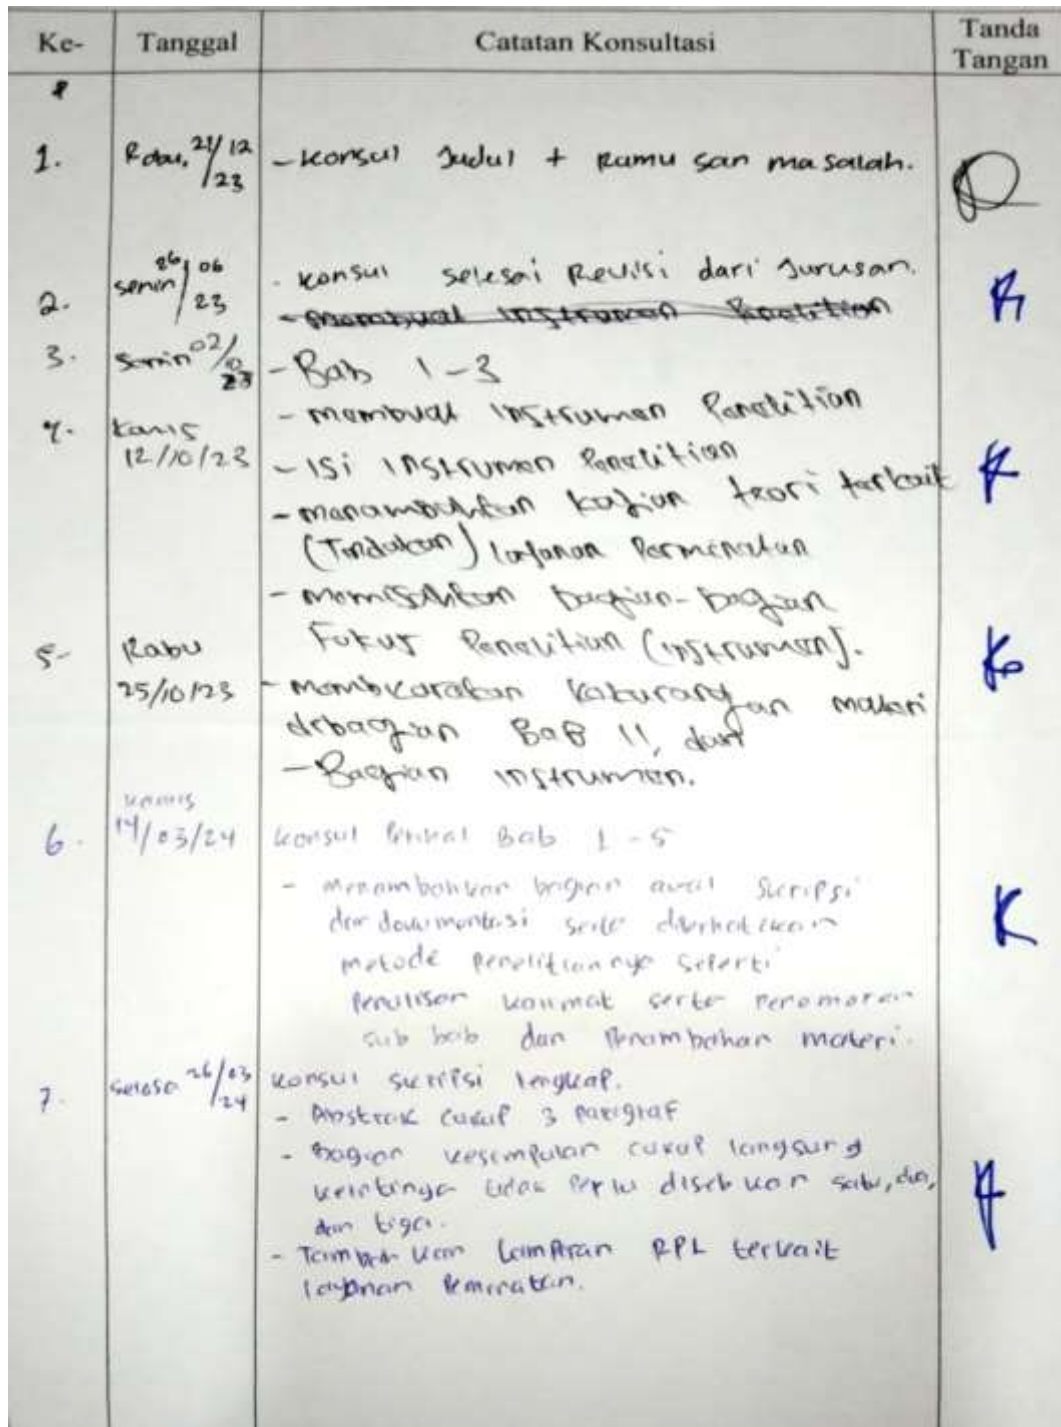 Ke- Tanggal Catatan Konsultasi Tanda Tangan
1. Rabu, 21/12/23 - Konsul Judul + Rumusan masalah.
2. Senin 26/06/23 - Konsul selesai Revisi dari Jurusan.
- Membuat instrumen Penelitian
3. Senin 02/10/23 - Bab 1-3
- Membuat instrumen Penelitian
4. Kamis 12/10/23 - Isi instrumen Penelitian
- menambahkan kajian teori terkait
(Tindakan) layanan Perminatan
- memisahkan bagian-bagian
Fokus Penelitian (instrumen).
5- Rabu 25/10/23 - membicarakan kekurangan materi
dibagian BaB II, dan
- Bagian instrumen.
6. Kamis 14/03/24 Konsul Bab 1-5
- Menambahkan bagian awal skripsi
dan dokumentasi serta diperhatikan
metode penelitiannya seperti
Penulisan kalimat serta penomoran
sub bab dan Penambahan materi.
7. Selasa 26/03/24 Konsul skripsi lengkap.
- Abstrak cukup 3 paragraf
- Bagian kesimpulan cukup langsung
tidak perlu disebukan satu, dua,
dan tiga.
- Tambahkan lampiran RPL terkait
layanan Peminatan.